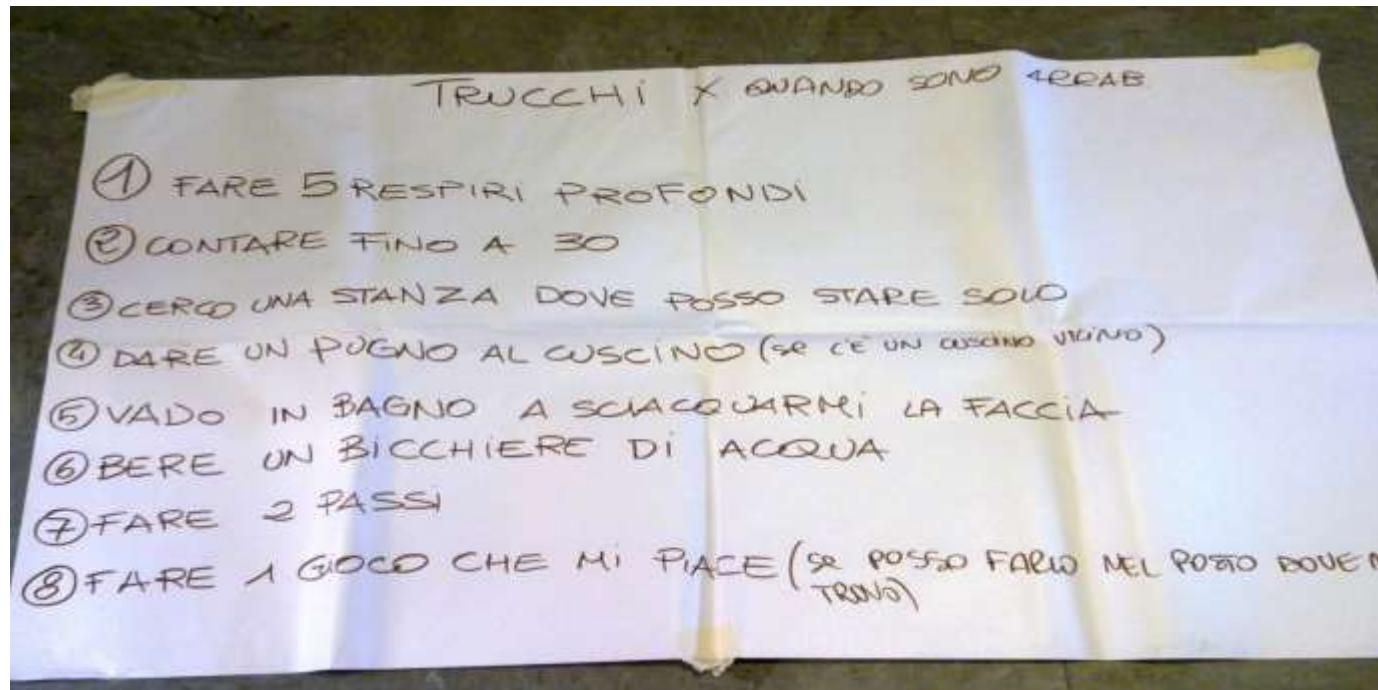 TRUCCHI X QUANDO SONO ARRAB
① FARE 5 RESPIRI PROFONDI
② CONTARE FINO A 30
③ CERCO UNA STANZA DOVE POSSO STARE SOLO
④ DARE UN PUGNO AL CUSCINO (SE C'E UN CUSCINO VICINO)
⑤ VADO IN BAGNO A SCIACQUARMI LA FACCIA
⑥ BERE UN BICCHIERE DI ACQUA
⑦ FARE 2 PASSI
⑧ FARE 1 GIOCO CHE MI PIACE (SE POSSO FARLO NEL POSTO DOVE M
TROVO)